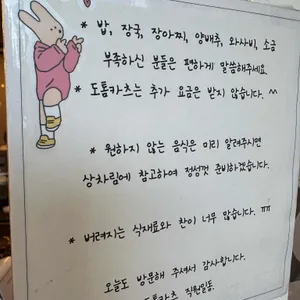 * 밥, 장국, 장아찌, 양배추, 와사비, 소금
부족하신 분들은 편하게 말씀해주세요.
* 도톰카츠는 추가 요금은 받지 않습니다. ^^
* 원하지 않는 음식은 미리 알려주시면
상차림에 참고하여 정성껏 준비하겠습니다.
* 버려지는 식재료와 찬이 너무 많습니다. ㅠㅠ
오늘도 방문해 주셔서 감사합니다.
도톰카츠 직원일동.